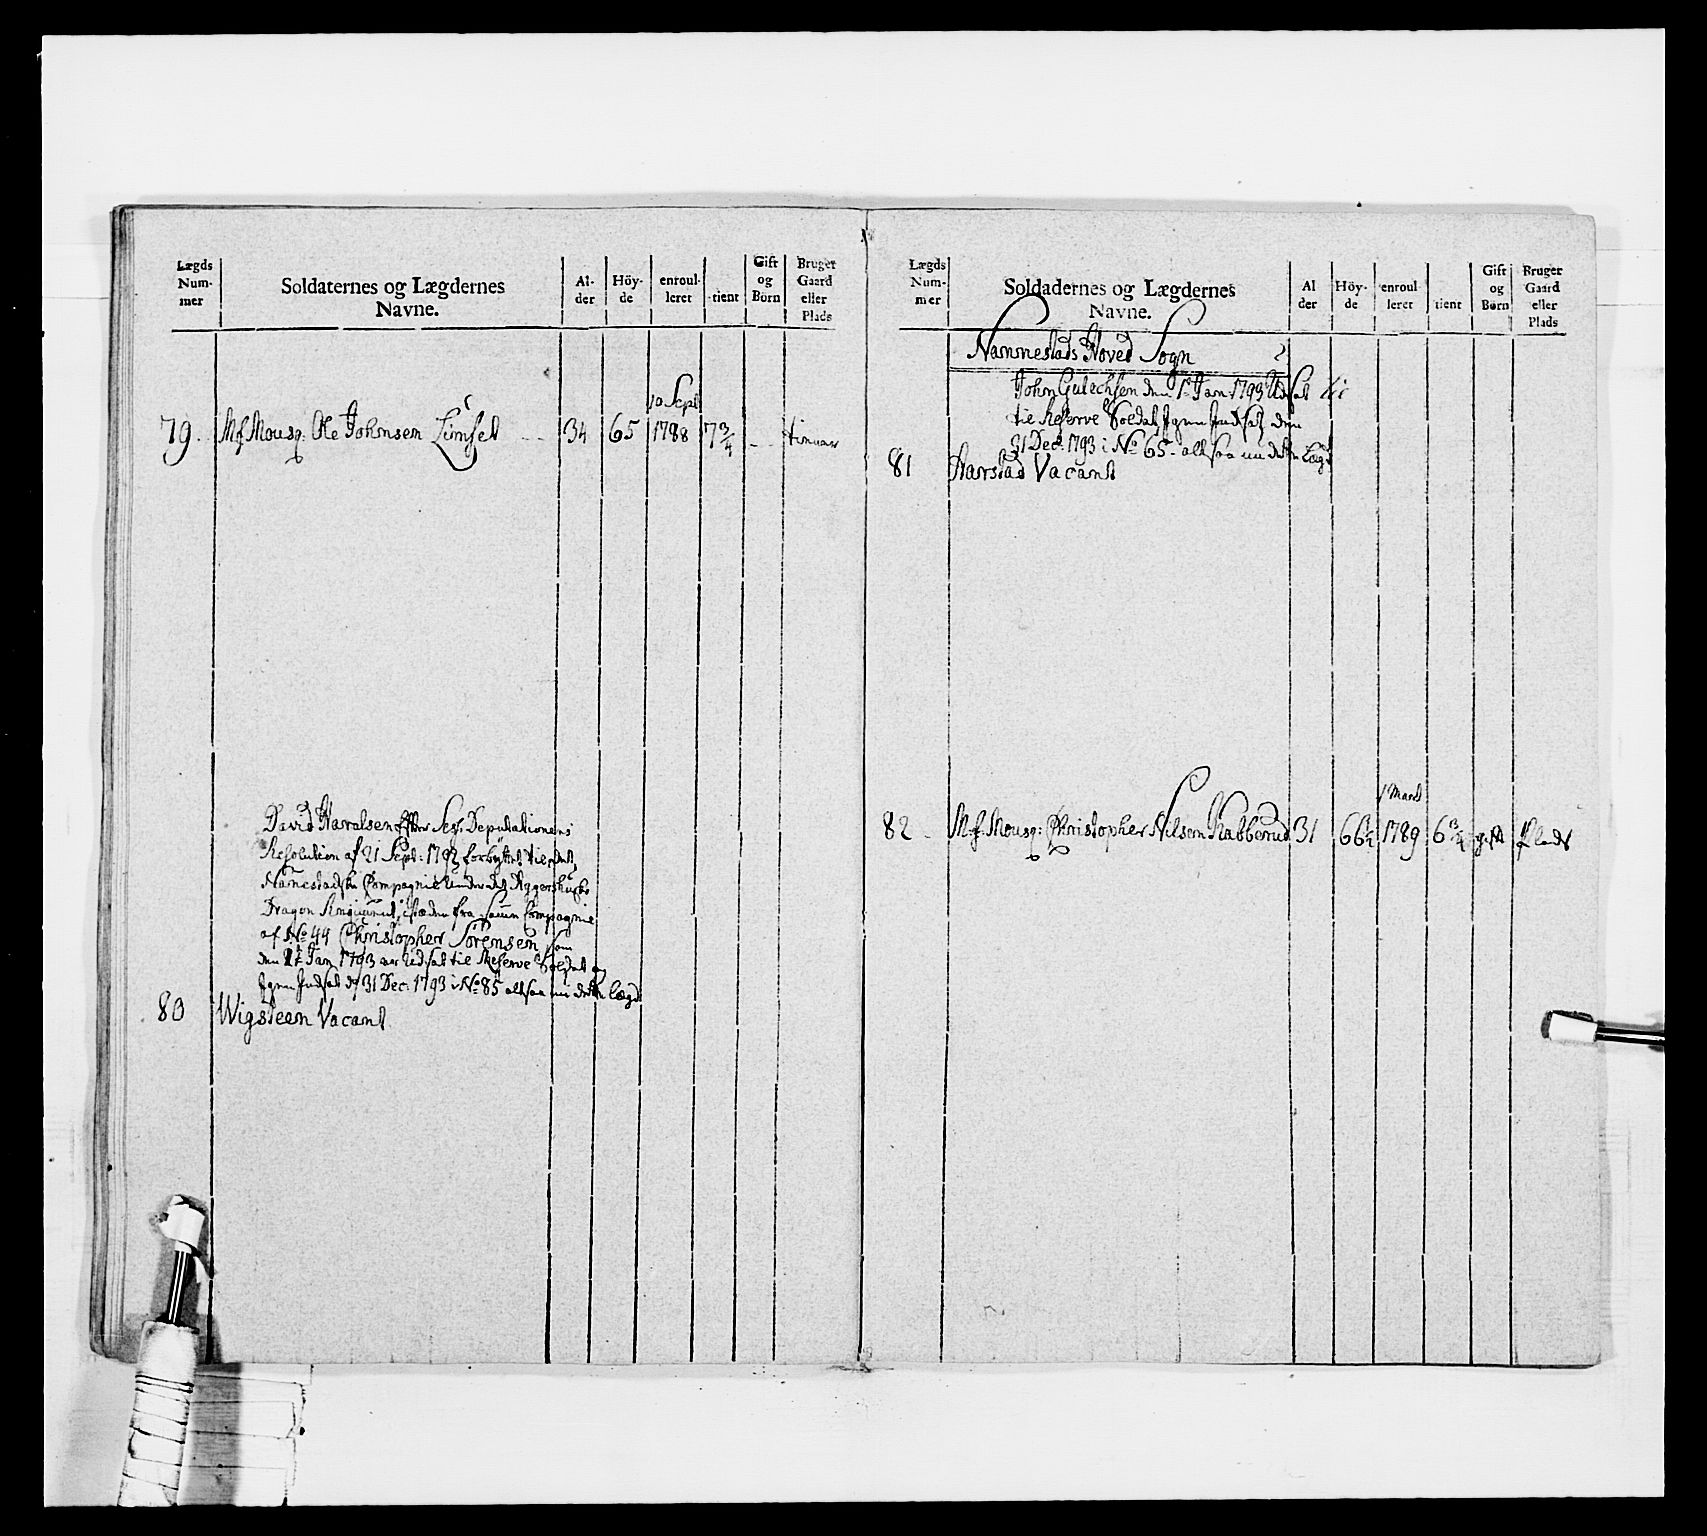 Lægds
Num-
mer
Soldaternes og Lægdernes
Navne.
Al-
der
Höy-
de
enroul-
leret
tient
Gift
og
Börn
Bruger
Gaard
eller
Plads
10 Sept
79. Mf. Mousq: Ole Johnsen Limset 34 65 1788 7 3/4
David Haralsen efter Sess: Deputationens
Resolution af 21 Sept: 1792 forbyttet til det
Compagnie under det Aggershuuske
Dragon Regiment, isteden fra samme Compagnie
af No 44 Christopher Sörensen, som
den 1t Jan 1793 er udsat til Reserve Soldat og
igien indsat d 31 Dec: 1793 i No 85 altsaa nu dette Lægd
80 Wigsteen Vacant
Lægds
Num-
mer
Soldadernes og Lægdernes
Navne.
Al
der
Höy-
de
enroul
leret
tient
Gift
og
Börn
Bruger
Gaard
eller
Plads
Nannestads Hoved Sogn
John Gulechsen den 1t Jan: 1793 Udsat
til Reserve Soldat, igien indsat den
31 Dec: 1793 i No 65 - altsaa nu dette Lægd
81 Harstad Vacant
1 Marts
82 - Mf. Mousq: Christopher Nilsen Rabberud 31 66 1/2 1789 6 3/4 gift Plads